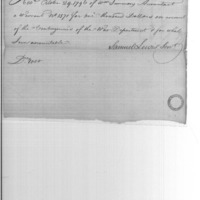 1796 of Wm Simmons Accountant
a Warrant No 1271 for six Hundred Dollars on account
of the Contingencies of the War Department & for which
I am accountable
Samuel Lewis